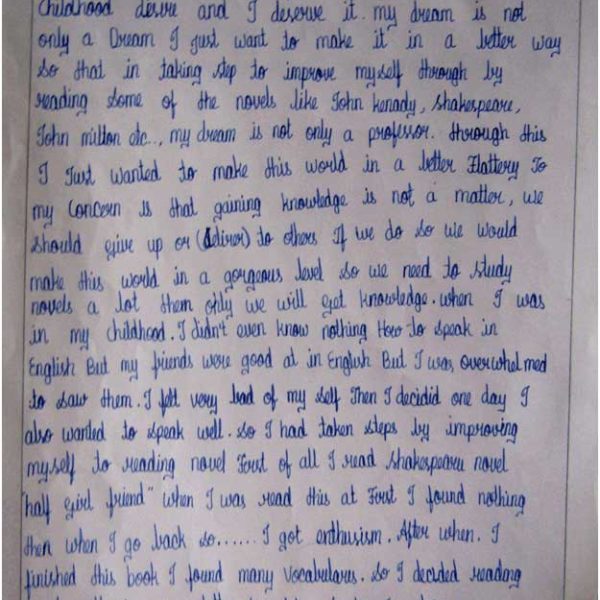 Childhood desire and I deserve it. my dream is not
only a Dream I Just want to make it in a better way
so that in taking step to improve myself through by
reading some of the novels like John kenady, shakespeare,
John milton etc.., my dream is not only a professor. through this
I Just wanted to make this world in a better Flattery To
my Concern is that gaining knowledge is not a matter, we
should give up or (deliver) to others If we do so we would
make this world in a gorgeous level so we need to study
novels a lot them only we will get knowledge. when I was
in my childhood. I didn't even know nothing How to speak in
English But my friends were good at in English But I was, overwhelmed
to saw them. I felt very bad of my self Then I decidid one day I
also wanted to speak well. so I had taken steps by improving
myself to reading novel First of all I read shakespeare novel
"half girl friend" when I was read this at First I found nothing
then when I go back so...... I got enthusism. After when. I
finished this book I found many vocabulares. So I decided reading